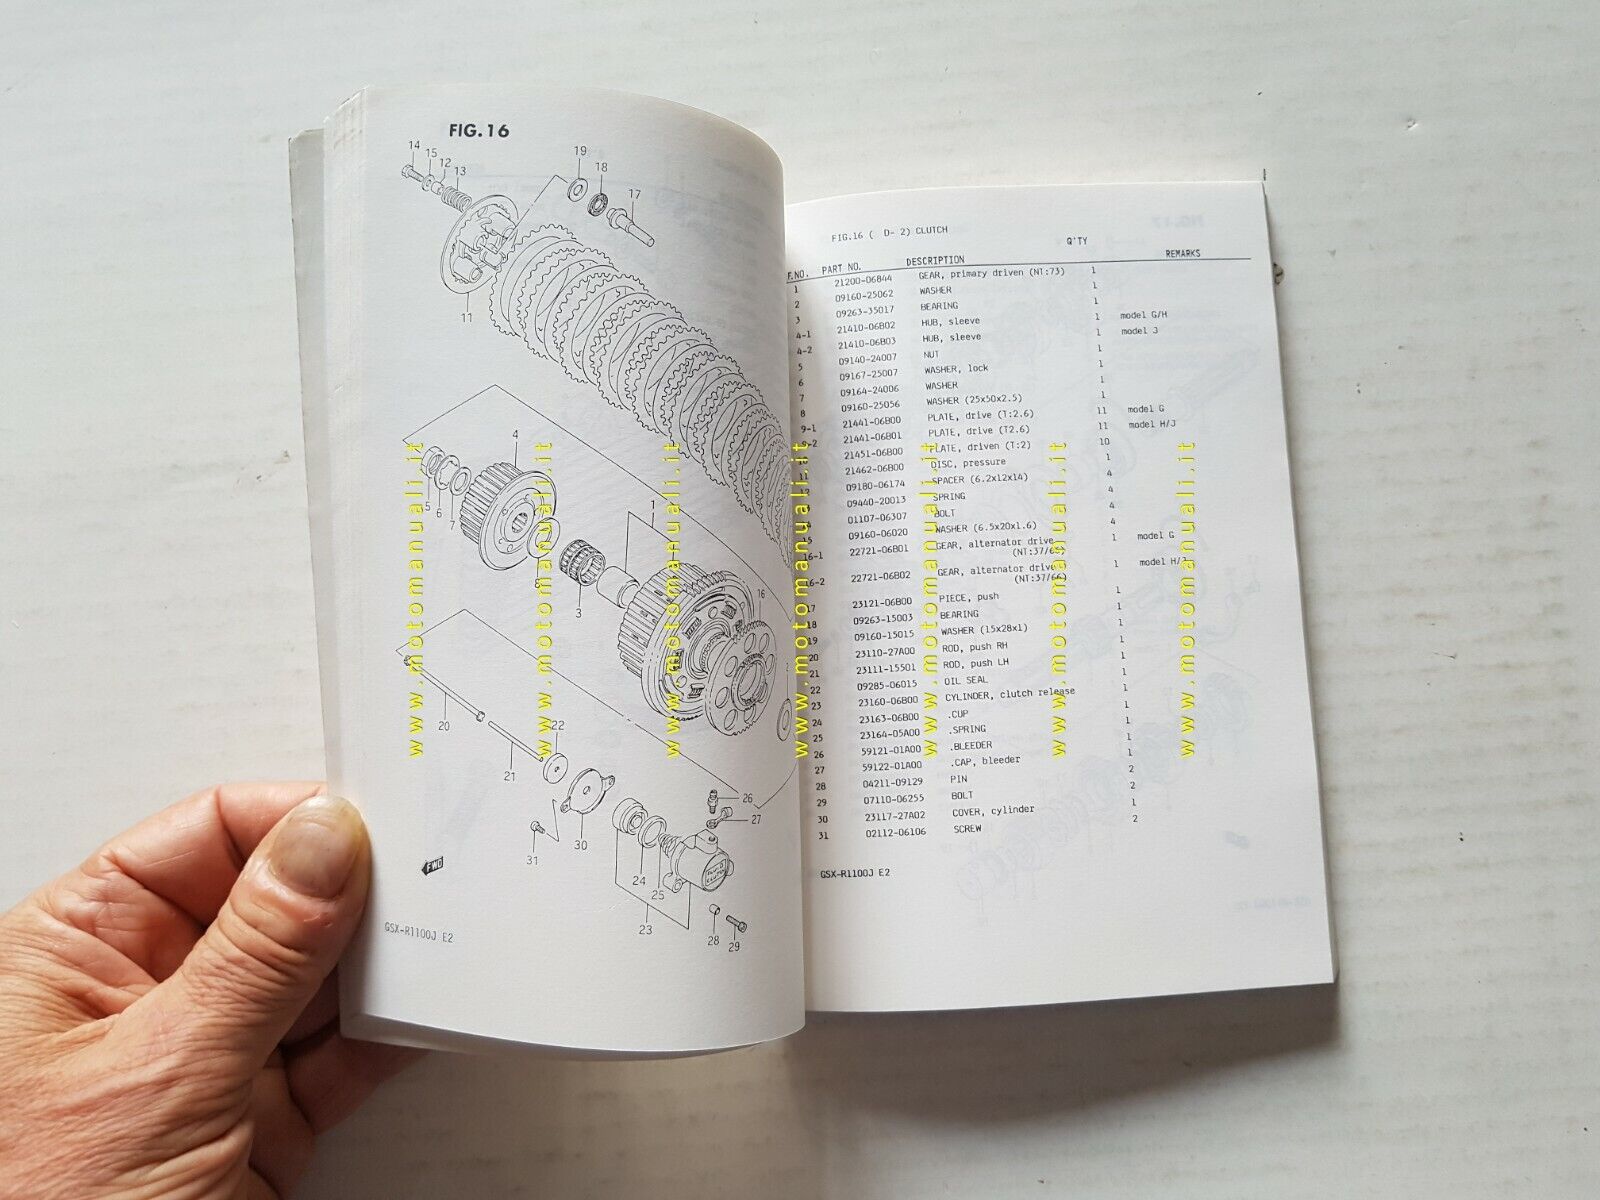 FIG.16
14
15
12
13
19
18
17
11
4
5
6
7
8
3
1
16
20
21
22
26
27
31
30
24
25
23
28
29
FWD
GSX-R1100J E2
FIG.16 ( D- 2) CLUTCH
F.NO. PART NO. DESCRIPTION Q'TY REMARKS
1 21200-06B44 GEAR, primary driven (NT:73) 1
2 09160-25062 WASHER 1
3 09263-35017 BEARING 1
4-1 21410-06B02 HUB, sleeve 1 model G/H
4-2 21410-06B03 HUB, sleeve 1 model J
5 09140-24007 NUT 1
6 09167-25007 WASHER, lock 1
7 09164-24006 WASHER 1
8 09160-25056 WASHER (25x50x2.5) 1
9-1 21441-06B00 PLATE, drive (T:2.6) 11 model G
9-2 21441-06B01 PLATE, drive (T2.6) 11 model H/J
21451-06B00 PLATE, driven (T:2) 10
11 21462-06B00 DISC, pressure 1
12 09180-06174 SPACER (6.2x12x14) 4
09440-20013 SPRING 4
14 01107-06307 BOLT 4
15 09160-06020 WASHER (6.5x20x1.6) 4
16-1 22721-06B01 GEAR, alternator drive 1 model G
(NT:37/65)
16-2 22721-06B02 GEAR, alternator drive 1 model H/J
(NT:37/66)
17 23121-06B00 PIECE, push 1
18 09263-15003 BEARING 1
19 09160-15015 WASHER (15x28x1) 1
20 23110-27A00 ROD, push RH 1
21 23111-15501 ROD, push LH 1
22 09285-06015 OIL SEAL 1
23 23160-06B00 CYLINDER, clutch release 1
24 23163-06B00 .CUP 1
25 23164-05A00 .SPRING 1
26 59121-01A00 .BLEEDER 1
27 59122-01A00 .CAP, bleeder 1
28 04211-09129 PIN 2
29 07110-06255 BOLT 2
30 23117-27A02 COVER, cylinder 1
31 02112-06106 SCREW 2
GSX-R1100J E2
www.motomanuali.it
www.motomanuali.it
www.motomanuali.it
www.motomanuali.it
www.motomanuali.it
www.motomanuali.it
www.motomanuali.it